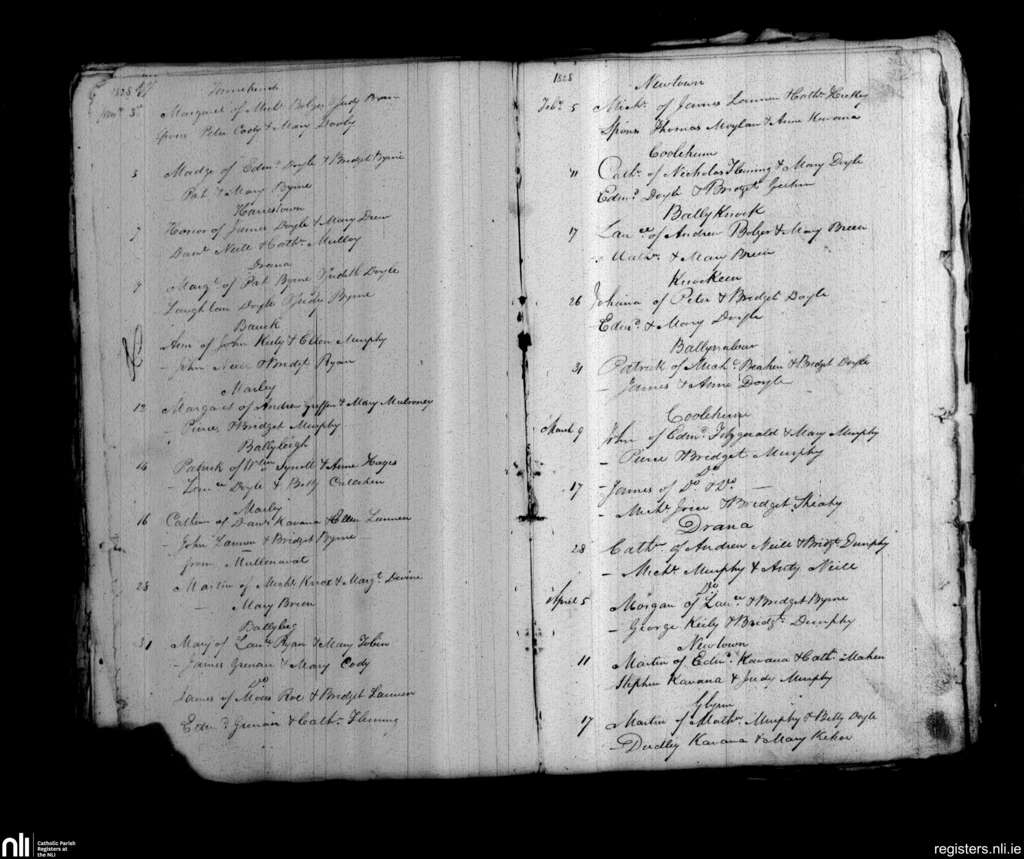 1828
Margaret of Michl. Bolger Judy
Spons Peter Cody & Mary
3 Madge of Edmd. Doyle & Bridget Byrne
Pat & Mary Byrne
7 Honor of James Doyle & Mary Drew
Danl. Neill & Cathn. Mulloy
Drana
9 Margt. of Pat Byrne Judith Doyle
Laughlan Doyle & Judy Byrne
Ann of John Kiely & Ellen Murphy
- John Neill & Bridgt. Ryan
Marley
12 Margaret of Andrew Griffin & Mary Mulrooney
- Pierce & Bridget Murphy
Ballyleigh
14 Patrick of Wllm Synott & Anne Hayes
- Lawce Doyle & Betty
Marley
16 of Danl. Kavana & Ellen Lannen
- John Lannen & Bridget Byrne
from Mullenavat
28 Martin of Michl. Knox & Margt. Devine
- Mary Breen
Ballyleg
31 Mary of Lawce Ryan & Mary Tobin
- James Grenan & Mary Cody
Do
James of Moses Roe & Bridget Lannen
Edmd. Grenan & Cathn. Fleming
1828
Newtown
Feby. 5 Michl. of James Lannen & Cathn.
Spons Thomas Moylan & Anne Kavana
Coolehune
11 Cathn. of Nicholas Fleming & Mary Doyle
Edmd. Doyle & Bridgt.
BallyKnock
17 Lawce of Andrew Bolger & Mary Breen
- Mathw. & Mary Breen
Knockeen
26 Johana of Peter & Bridget Doyle
Edmd. & Mary Doyle
31 Patrick of Michl. & Bridget Doyle
- James & Anne Doyle
Coolehune
March 9 John of Edmd. Fitzgerald & Mary Murphy
- Pierce & Bridget Murphy
Do
17 - James of Do & Do
- Michl. & Bridget
Drana
28 Cathn. of Andrew Neill & Bridgt. Dunphy
- Michl. Murphy & Andy Neill
Do
April 5 Morgan of Lawce & Bridget Byrne
- George Kiely & Bridgt. Dunphy
Newtown
11 Martin of Edmd. Kavana & Cathn. Maher
Stephen Kavana & Judy Murphy
Glynn
17 Martin of Mathw. Murphy & Betty Doyle
- Dudley Kavana & Mary Kehoe
nli
Catholic Parish
Registers at
the NLI
registers.nli.ie